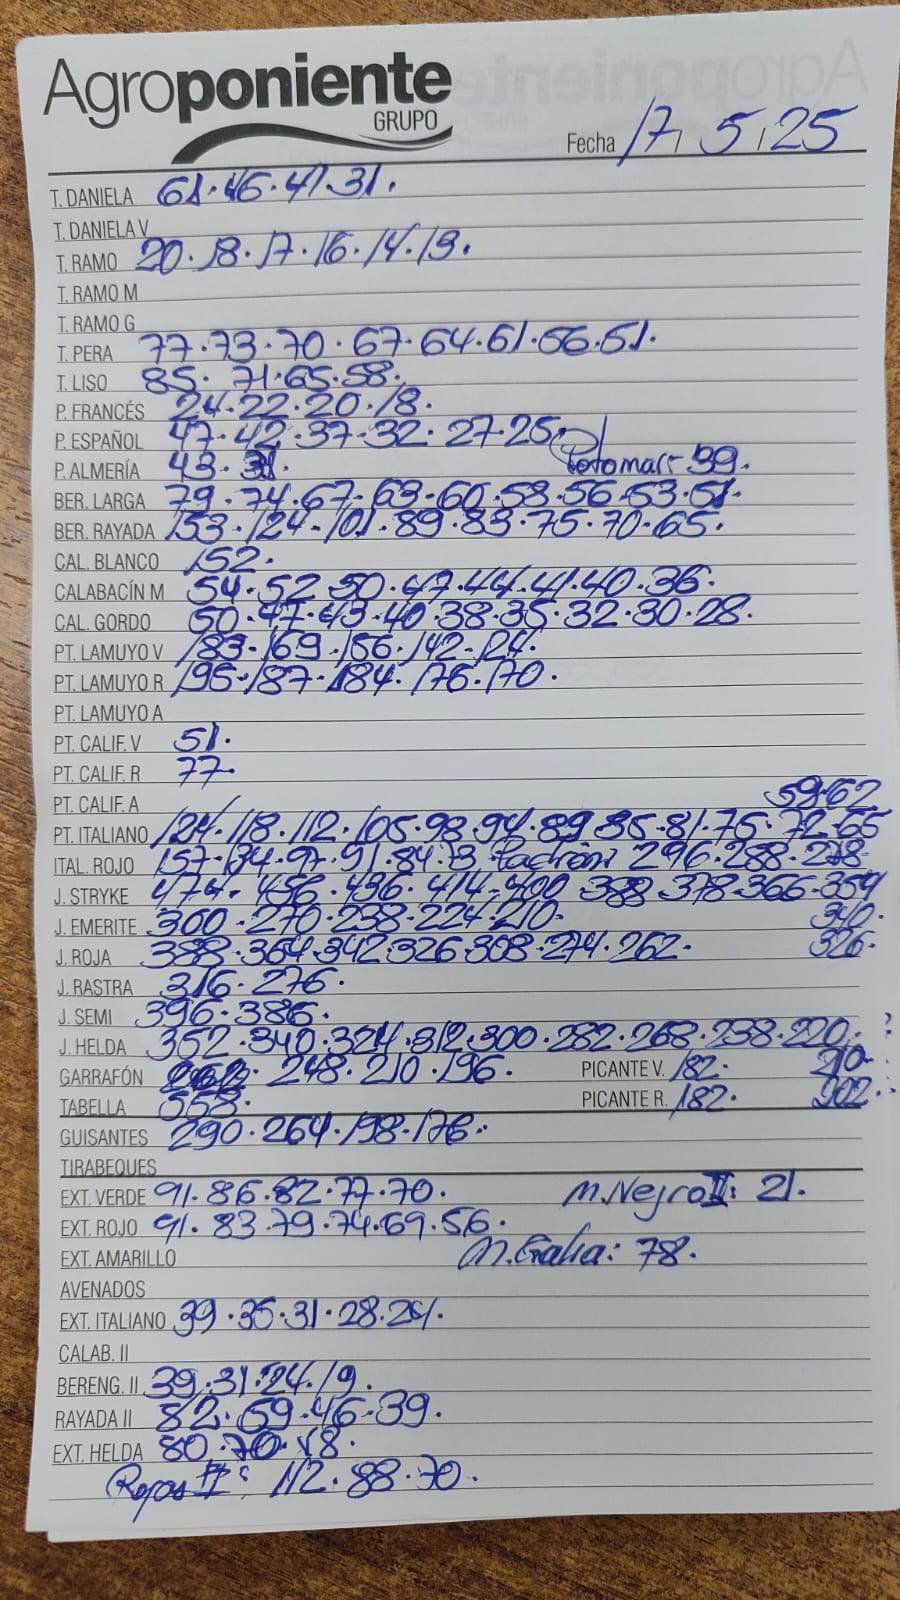 Agroponiente
GRUPO
Fecha 17, 5, 25
T. DANELA 61.46.41.31.
T. DANIELA V
T. RAMO 20.18.17.16.14.13.
T. RAMO M
T. RAMO G
T. PERA 77.73.70.67.64.61.56.51.
T. LISO 85.71.65.58.
P. FRANCÉS 24.22.20.18.
P. ESPAÑOL 47.42.37.32.27.25.
P. ALMERÍA 43.31. Potomac: 39.
BER. LARGA 79.74.67.63.60.58.56.53.51.
BER. RAYADA 153.124.101.89.83.75.70.65.
CAL. BLANCO 152.
CALABACÍN M 54.52.50.47.44.41.40.36.
CAL. GORDO 50.47.43.40.38.35.32.30.28.
PT. LAMUYO V 183.169.156.142.124.
PT. LAMUYO R 195.187.184.176.170.
PT. LAMUYO A
PT. CALIF. V 51.
PT. CALIF. R 77.
PT. CALIF. A 59.62
PT. ITALIANO 124.118.112.105.98.94.89.85.81.75.72.65
ITAL. ROJO 157.134.97.91.84.73. Padrón: 296.288.278.
J. STRYKE 474.456.436.414.400.388.378.366.354
J. EMERITE 300.270.238.224.210. 340.
J. ROJA 388.364.342.326.308.274.262. 326.
J. RASTRA 316.276.
J. SEMI 396.386.
J. HELDA 352.340.324.312.300.282.268.238.220.
GARRAFÓN 248.210.196. PICANTE V. 182. 210.
TABELLA 558. PICANTE R. 182. 202.
GUISANTES 290.264.198.176.
TIRABEQUES
EXT. VERDE 91.86.82.77.70. M. Negro II: 21.
EXT. ROJO 91.83.79.74.69.56.
EXT. AMARILLO M. Galia: 78.
AVENADOS
EXT. ITALIANO 39.35.31.28.24.
CALAB. II
BERENG. II 39.31.24.19.
RAYADA II 82.59.46.39.
EXT. HELDA 80.70.18.
Rojos II: 112.88.70.